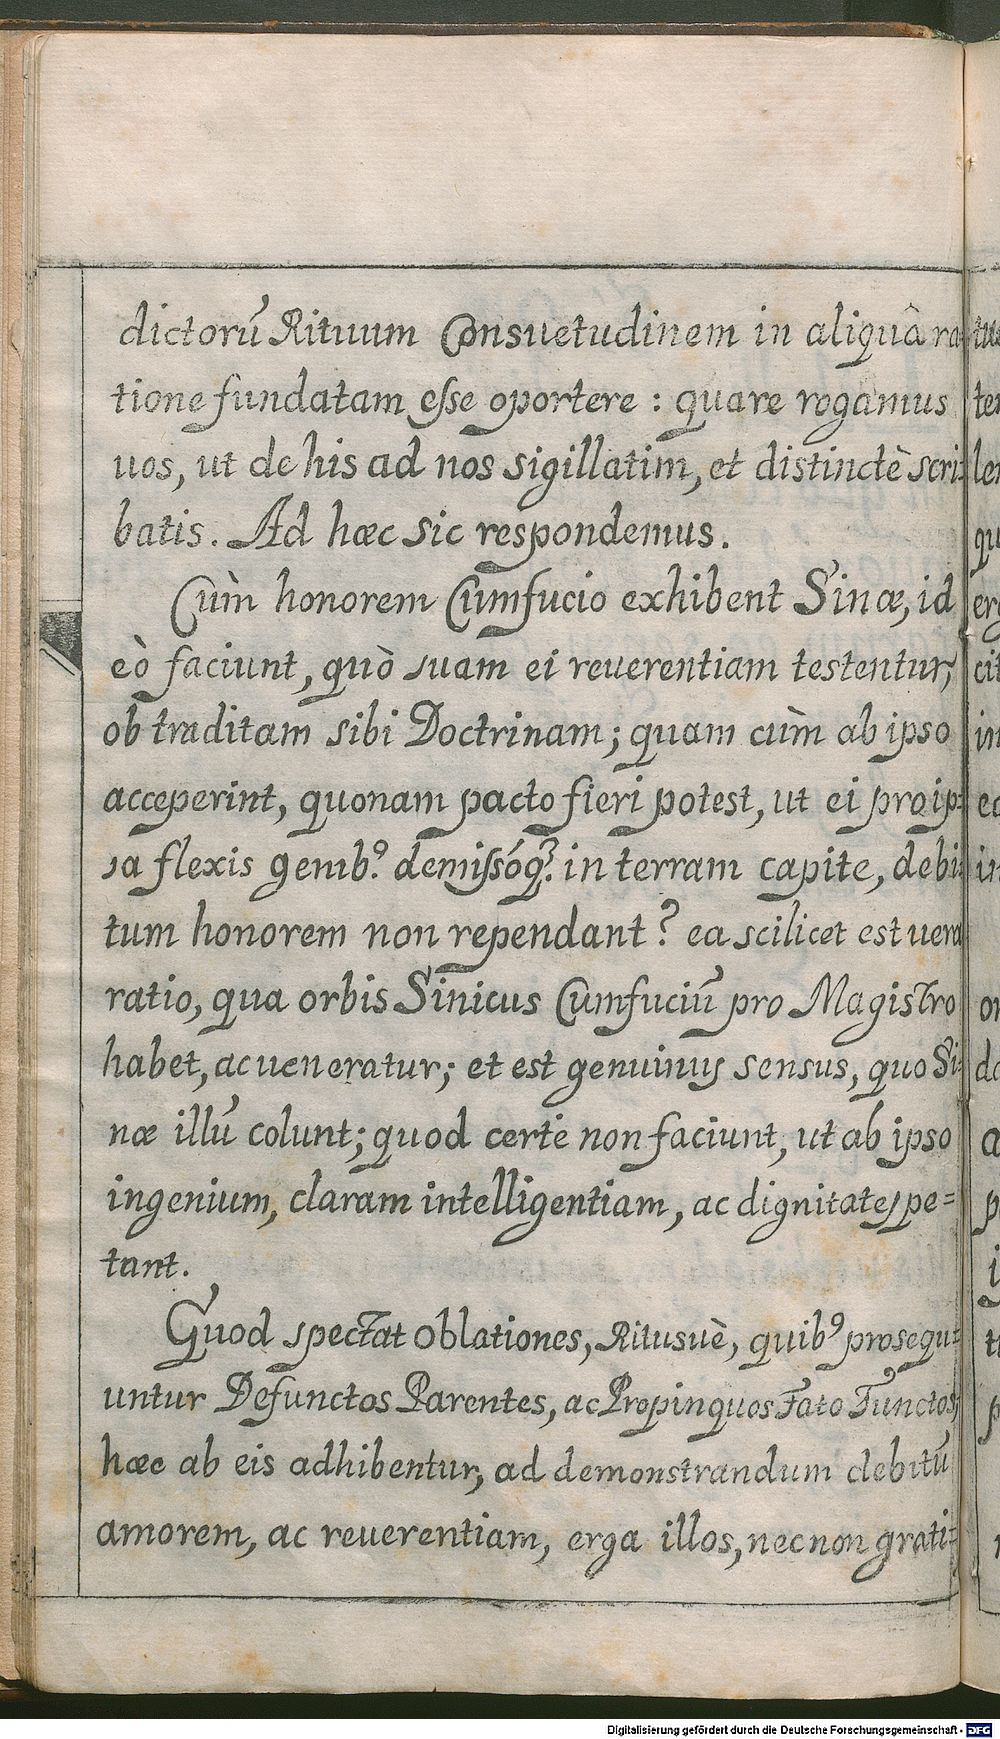 dictorũ Rituum Consuetudinem in aliquâ ra
tione fundatam esse oportere : quare rogamus
uos, ut de his ad nos sigillatim, et distinctè scri=
batis. Ad hæc sic respondemus.
Cùm honorem Cumfucio exhibent Sinæ, id
eò faciunt, quò suam ei reuerentiam testentur,
ob traditam sibi Doctrinam; quam cùm ab ipso
acceperint, quonam pacto fieri potest, ut ei pro ip=
sa flexis genibꝰ. demissóq́ꝫ in terram capite, debi=
tum honorem non rependant? ea scilicet est uera
ratio, qua orbis Sinicus Cumfuciũ pro Magistro
habet, ac ueneratur; et est genuinus sensus, quo Si=
næ illũ colunt; quod certe non faciunt, ut ab ipso
ingenium, claram intelligentiam, ac dignitates pe=
tant.
Quod spectat Oblationes, Ritusuè, quibꝰ prosequ=
untur Defunctos Parentes, ac Propinquos Fato Functos,
hæc ab eis adhibentur, ad demonstrandum debitũ
amorem, ac reuerentiam, erga illos, necnon grati=
Digitalisierung gefördert durch die Deutsche Forschungsgemeinschaft - DFG